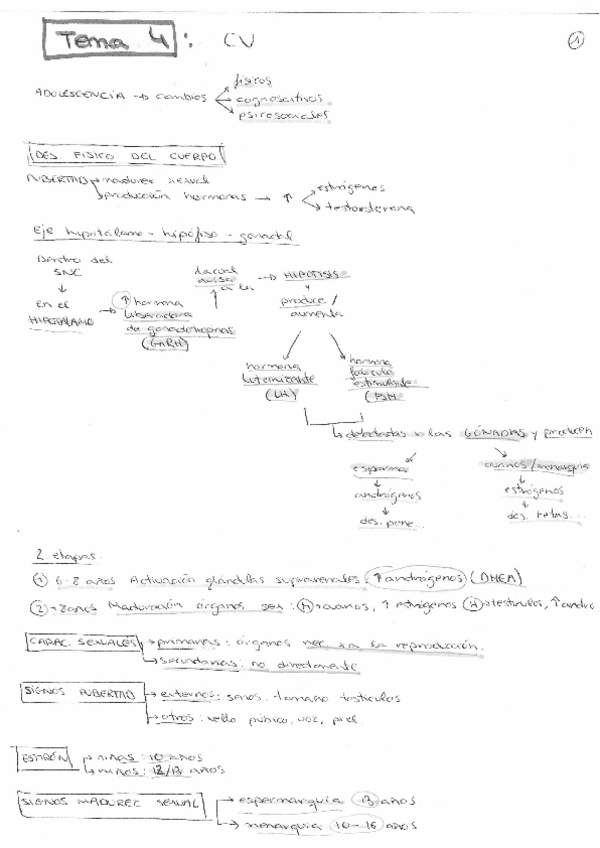 Tema 4 : CV
1
ADOLESCENCIA → cambios
físicos
cognoscitivos
psicosociales
DES FISICO DEL CUERPO
PUBERTAD → madurez sexual
→ producción hormonas → ↑
estrógenos
testosterona
Eje hipotálamo - hipófisis - gonadal
Dentro del
SNC
↓
En el
HIPOTALAMO
→ ↑ hormona
liberadora
de gonadotropinas
(GnRH)
↑
la cual
a la
→ HIPOFISIS
y
produce /
aumenta
hormona
luteinizante
(LH)
hormona
folículo
estimulante
(FSH)
↳ detectadas x las GÓNADAS y producen
esperma
↓
andrógenos
↓
des. pene...
ovarios/menarquia
↓
estrógenos
↓
des. tetas...
2 etapas
① 6-8 años Activación glándulas suprarrenales: ↑ andrógenos (DHEA)
② Maduración órganos sex: ovarios, ↑ estrógenos testículos, ↑ andro
CARAC. SEXUALES → primarias: órganos nec. xa la reproducción.
→ secundarias: no directamente
SIGNOS PUBERTAD → externos: senos, tamaño testículos
→ otros: vello púbico, voz, piel
ESTIRÓN → niñas: 10 años
→ niños: 12/13 años
SIGNOS MADUREZ SEXUAL → espermarquia 13 años
→ menarquia 10-16 años